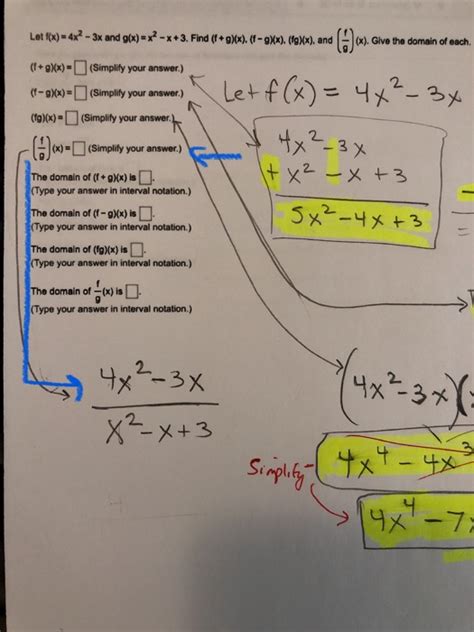 Let f(x) = 4x² − 3x and g(x) = x² − x + 3. Find (f + g)(x), (f − g)(x), (fg)(x), and (f/g)(x). Give the domain of each.
(f + g)(x) = □ (Simplify your answer.)
(f − g)(x) = □ (Simplify your answer.)
(fg)(x) = □ (Simplify your answer.)
(f/g)(x) = □ (Simplify your answer.)
The domain of (f + g)(x) is □.
(Type your answer in interval notation.)
The domain of (f − g)(x) is □.
(Type your answer in interval notation.)
The domain of (fg)(x) is □.
(Type your answer in interval notation.)
The domain of f/g (x) is □.
(Type your answer in interval notation.)
Let f(x) = 4x² − 3x
4x² − 3x
+ x² − x + 3
5x² − 4x + 3
4x² − 3x
x² − x + 3
(4x² − 3x)(
Simplify
4x⁴ − 4x³
4x⁴ − 7